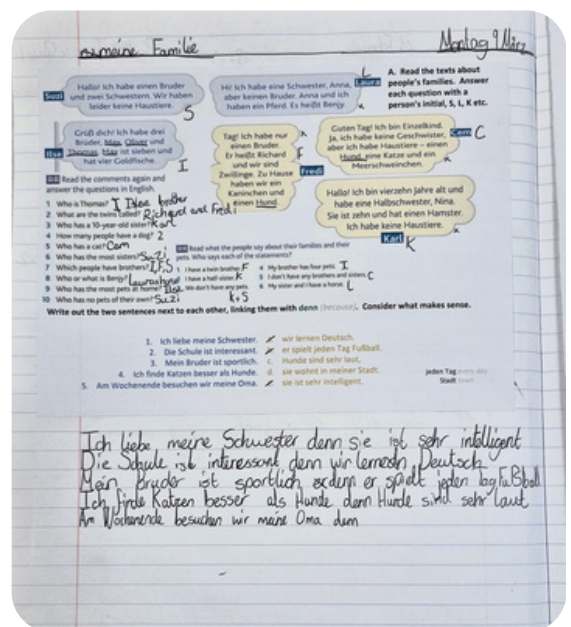 meine Familie
Montag 9 März
A. Read the texts about people's families. Answer each question with a person's initial, S, L, K etc.
Suzi
Hallo! Ich habe einen Bruder
und zwei Schwestern. Wir haben
leider keine Haustiere.
S
Hi! Ich habe eine Schwester, Anna,
aber keinen Bruder. Anna und ich
haben ein Pferd. Es heißt Benjy.
Laura
L
Ilse
Grüß dich! Ich habe drei
Brüder, Max, Oliver und
Thomas. Max ist sieben und
hat vier Goldfische.
I
Tag! Ich habe nur
einen Bruder.
Er heißt Richard
und wir sind
Zwillinge. Zu Hause
haben wir ein
Kaninchen und
einen Hund.
Fredi
F
Guten Tag! Ich bin Einzelkind.
Ja, ich habe keine Geschwister,
aber ich habe Haustiere – einen
Hund, eine Katze und ein
Meerschweinchen.
Cem
C
Hallo! Ich bin vierzehn Jahre alt und
habe eine Halbschwester, Nina.
Sie ist zehn und hat einen Hamster.
Ich habe keine Haustiere.
Karl
K
Read the comments again and
answer the questions in English.
1 Who is Thomas? I Ilse brother
2 What are the twins called? Richard and Fredi
3 Who has a 10-year-old sister? Karl
4 How many people have a dog? 2
5 Who has a cat? Cem
6 Who has the most sisters? Suzi
7 Which people have brothers? I, F, S
8 Who or what is Benjy?
9 Who has the most pets at home? Ilse
10 Who has no pets of their own? Suzi
Read what the people say about their families and their
pets. Who says each of the statements?
1 I have a twin brother. F
2 I have a half-sister. K
3 We don't have any pets. K, S
4 My brother has four pets. I
5 I don't have any brothers and sisters. C
6 My sister and I have a horse. L
Write out the two sentences next to each other, linking them with denn (because). Consider what makes sense.
1. Ich liebe meine Schwester.
2. Die Schule ist interessant.
3. Mein Bruder ist sportlich.
4. Ich finde Katzen besser als Hunde.
5. Am Wochenende besuchen wir meine Oma.
wir lernen Deutsch.
er spielt jeden Tag Fußball.
c. Hunde sind sehr laut,
d. sie wohnt in meiner Stadt.
sie ist sehr intelligent.
jeden Tag every day
Stadt town
Ich liebe meine Schwester denn sie ist sehr intelligent
Die Schule ist interessant denn wir lernedn Deutsch
Mein Bruder ist sportlich denn er spielt jeden Tag Fußball
Ich finde Katzen besser als Hunde denn Hunde sind sehr laut
Am Wochenende besuchen wir meine Oma denn